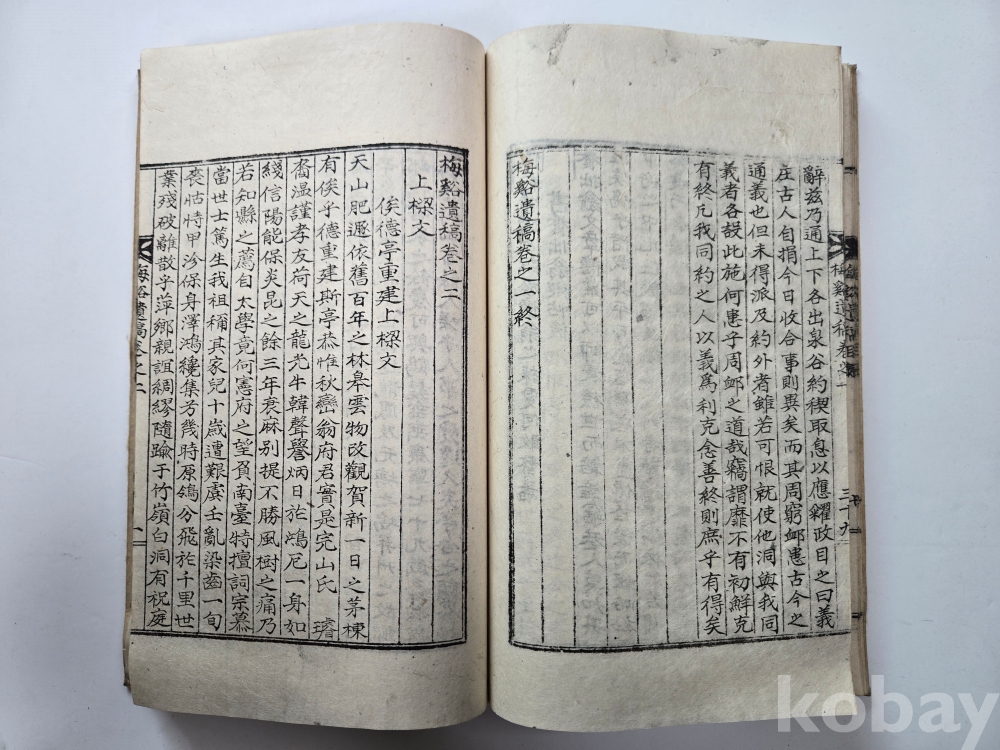 辭兹乃通上下各出泉谷約稧取息以應糴政目之曰義
庄古人自捐今日收合事則異矣而其周窮卹患古今之
通義也但未得派及約外者雖若可恨就使他洞與我同
義者各設此施何患于周卹之道哉竊謂靡不有初鮮克
有終凡我同約之人以義爲利克念善終則庶乎有得矣
梅谿遺稿卷之一終
梅谿遺稿卷之一
三十九
梅谿遺稿卷之二
上樑文
俟德亭重建上樑文
天山肥遯依舊百年之林皐雲物改觀賀新一日之茅棟
有俟乎德重建斯亭恭惟秋巒翁府君實是完山氏 璿
裔溫謹孝友荷天之龍光牛韓聲譽炳日於鴻厄一身如
綫信陽能保炎昆之餘三年衰麻別提不勝風樹之痛乃
若知縣之薦自太學竟何憲府之望負南臺特擅詞宗慕
當世士篤生我祖稱其家兒十歲遭艱虞壬亂染齒一旬
喪怙恃甲沴保身澤鴻纔集方幾時原鴿分飛於千里世
業殘破離散子萍鄉親誼綢繆隨踰于竹嶺白洞有祝庭
梅谿遺稿卷之二
一
kobay